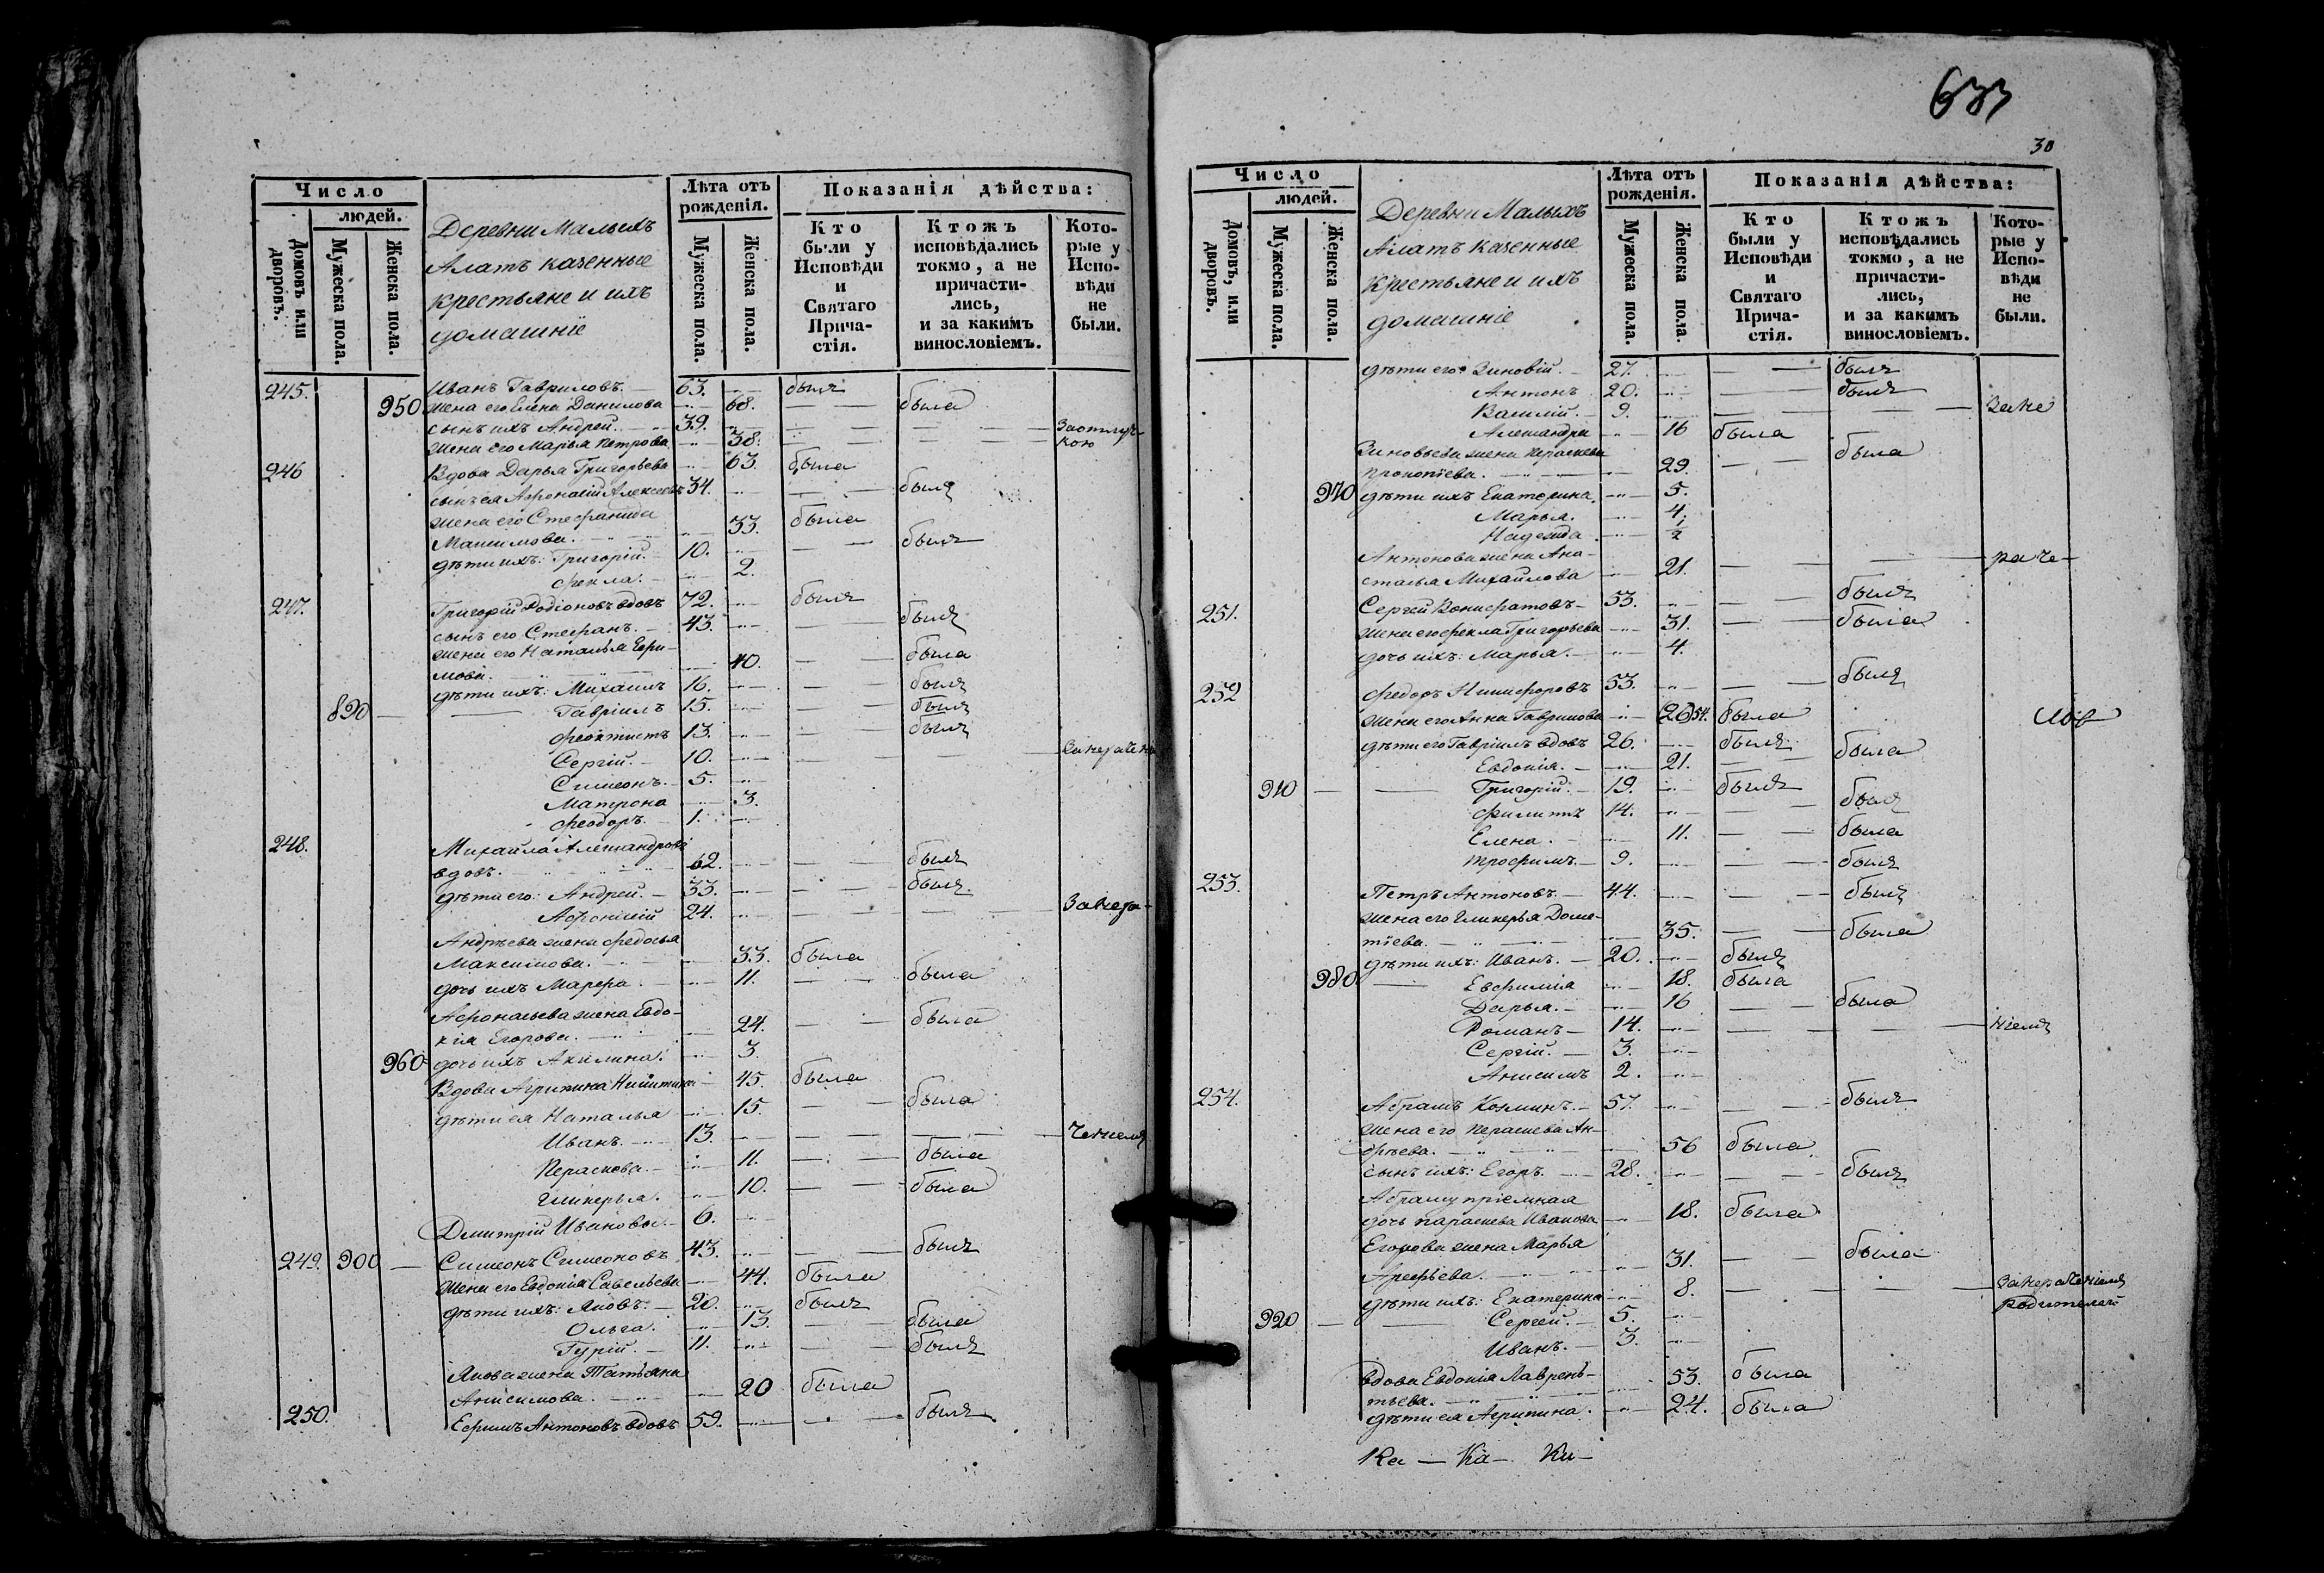 633
30
Число
людей.
Домовъ или дворовъ.
Мужеска пола.
Женска пола.
Деревни Малыхъ
Алатъ казенные
крестьяне и ихъ
домашніе
Лѣта отъ рожденія.
Мужеска пола.
Женска пола.
Показанія дѣйства:
Кто были у Исповѣди и Святаго Прича-стія.
Ктожъ исповѣдались токмо, а не причасти-лись, и за какимъ винословіемъ.
Кото-рые у Испо-вѣди не были.
245. Иванъ Гавриловъ. 63. былъ
950 жена его Елена Данилова 68. была
сынъ ихъ Андрей. 39. За отлуч-
жена его Марья Петрова 38. кою
246 Вдова Дарья Григорьева 63. была
сынъ ея Афонасій Алексеевъ 34. былъ
жена его Стефанида
Максимова. 33. была
дѣти ихъ: Григорій. 10. былъ
Фекла. 2.
247. Григорій Родіоновъ вдовъ 72. былъ
сынъ его Стефанъ. 43. былъ
жена его Наталья Ефи-
мова. 40. была
дѣти ихъ: Михаилъ 16. былъ
890 — Гавріилъ 15. былъ
Феоктистъ 13. былъ
Сергій. 10.
Симеонъ. 5.
Матрона 3.
Феодоръ. 1.
248. Михайла Александровъ
вдовъ. 62. былъ
дѣти его: Андрей. 33. былъ
Афонасій 24. За нера-
Андрѣева жена Федосья
Максимова. 33. была
дочь ихъ Марфа. 11. была
Афонасьева жена Евдо-
кія Егорова. 24. была
960 дочь ихъ Акилина. 3.
Вдова Агрипина Никитина 45. была
дѣти ея Наталья 15. была
Иванъ. 13. ченіемъ
Параскова. 11. была
Гликерья. 10. была
Дмитрій Ивановъ. 6.
249. 900 — Симеонъ Симеоновъ 43. былъ
жена его Евдокія Савельева 44. была
дѣти ихъ: Яковъ. 20. былъ
Ольга. 13. была
Гурій. 11. былъ
Якова жена Татьяна
Анисимова. 20 была
250. Ефимъ Антоновъ вдовъ 59. былъ
Число
людей.
Домовъ, или дворовъ.
Мужеска пола.
Женска пола.
Деревни Малыхъ
Алатъ казенные
крестьяне и ихъ
домашніе
Лѣта отъ рожденія.
Мужеска пола.
Женска пола.
Показанія дѣйства:
Кто были у Исповѣди и Святаго Прича-стія.
Ктожъ исповѣдались токмо, а не причасти-лись, и за какимъ винословіемъ.
Кото-рые у Испо-вѣди не были.
дѣти его: Зиновій. 27. былъ
Антонъ 20. былъ
Василій. 9. За не
Александра 16 была
Зиновьева жена Параскева
Прокопіева. 29. была
970 дѣти ихъ Екатерина. 5.
Марья. 4.
Надежда. 1/2
Антонова жена Ана-
стасья Михайлова 21. раче-
251. Сергей Вонифатовъ 53. былъ
жена его Фекла Григорьева 31. была
дочь ихъ: Марья. 4.
252 Федоръ Никифоровъ 53. былъ
жена его Анна Гаврилова 26 54. была
дѣти его Гавріилъ вдовъ 26. былъ
Евдокія. 21. была
910 — Григорій. 19. былъ
Филиппъ 14. былъ
Елена. 11. была
Трофимъ. 9. былъ
253. Петръ Антоновъ. 44. былъ
жена его Гликерья Доме-
тіева. 35. была
дѣти ихъ: Иванъ. 20. былъ
980 — Евфимія 18. была
Дарья. 16 была
Романъ 14. ніемъ
Сергій. 3.
Анисимъ 2.
254. Абрамъ Козминъ. 57. былъ
жена его Параскева Ан-
дрѣева. 56 была
сынъ ихъ: Егоръ. 28. былъ
Абраму пріемная
дочь Параскева Иванова 18. была
Егорова жена Марья
Арефьева. 31. была
дѣти ихъ: Екатерина 8. За нераченіемъ
родителей
920 — Сергей. 5.
Иванъ. 3.
вдова Евдокія Лаврень-
тьева. 53. была
дѣти ея Агрипина. 24. была
Ка — Ка — Ка —